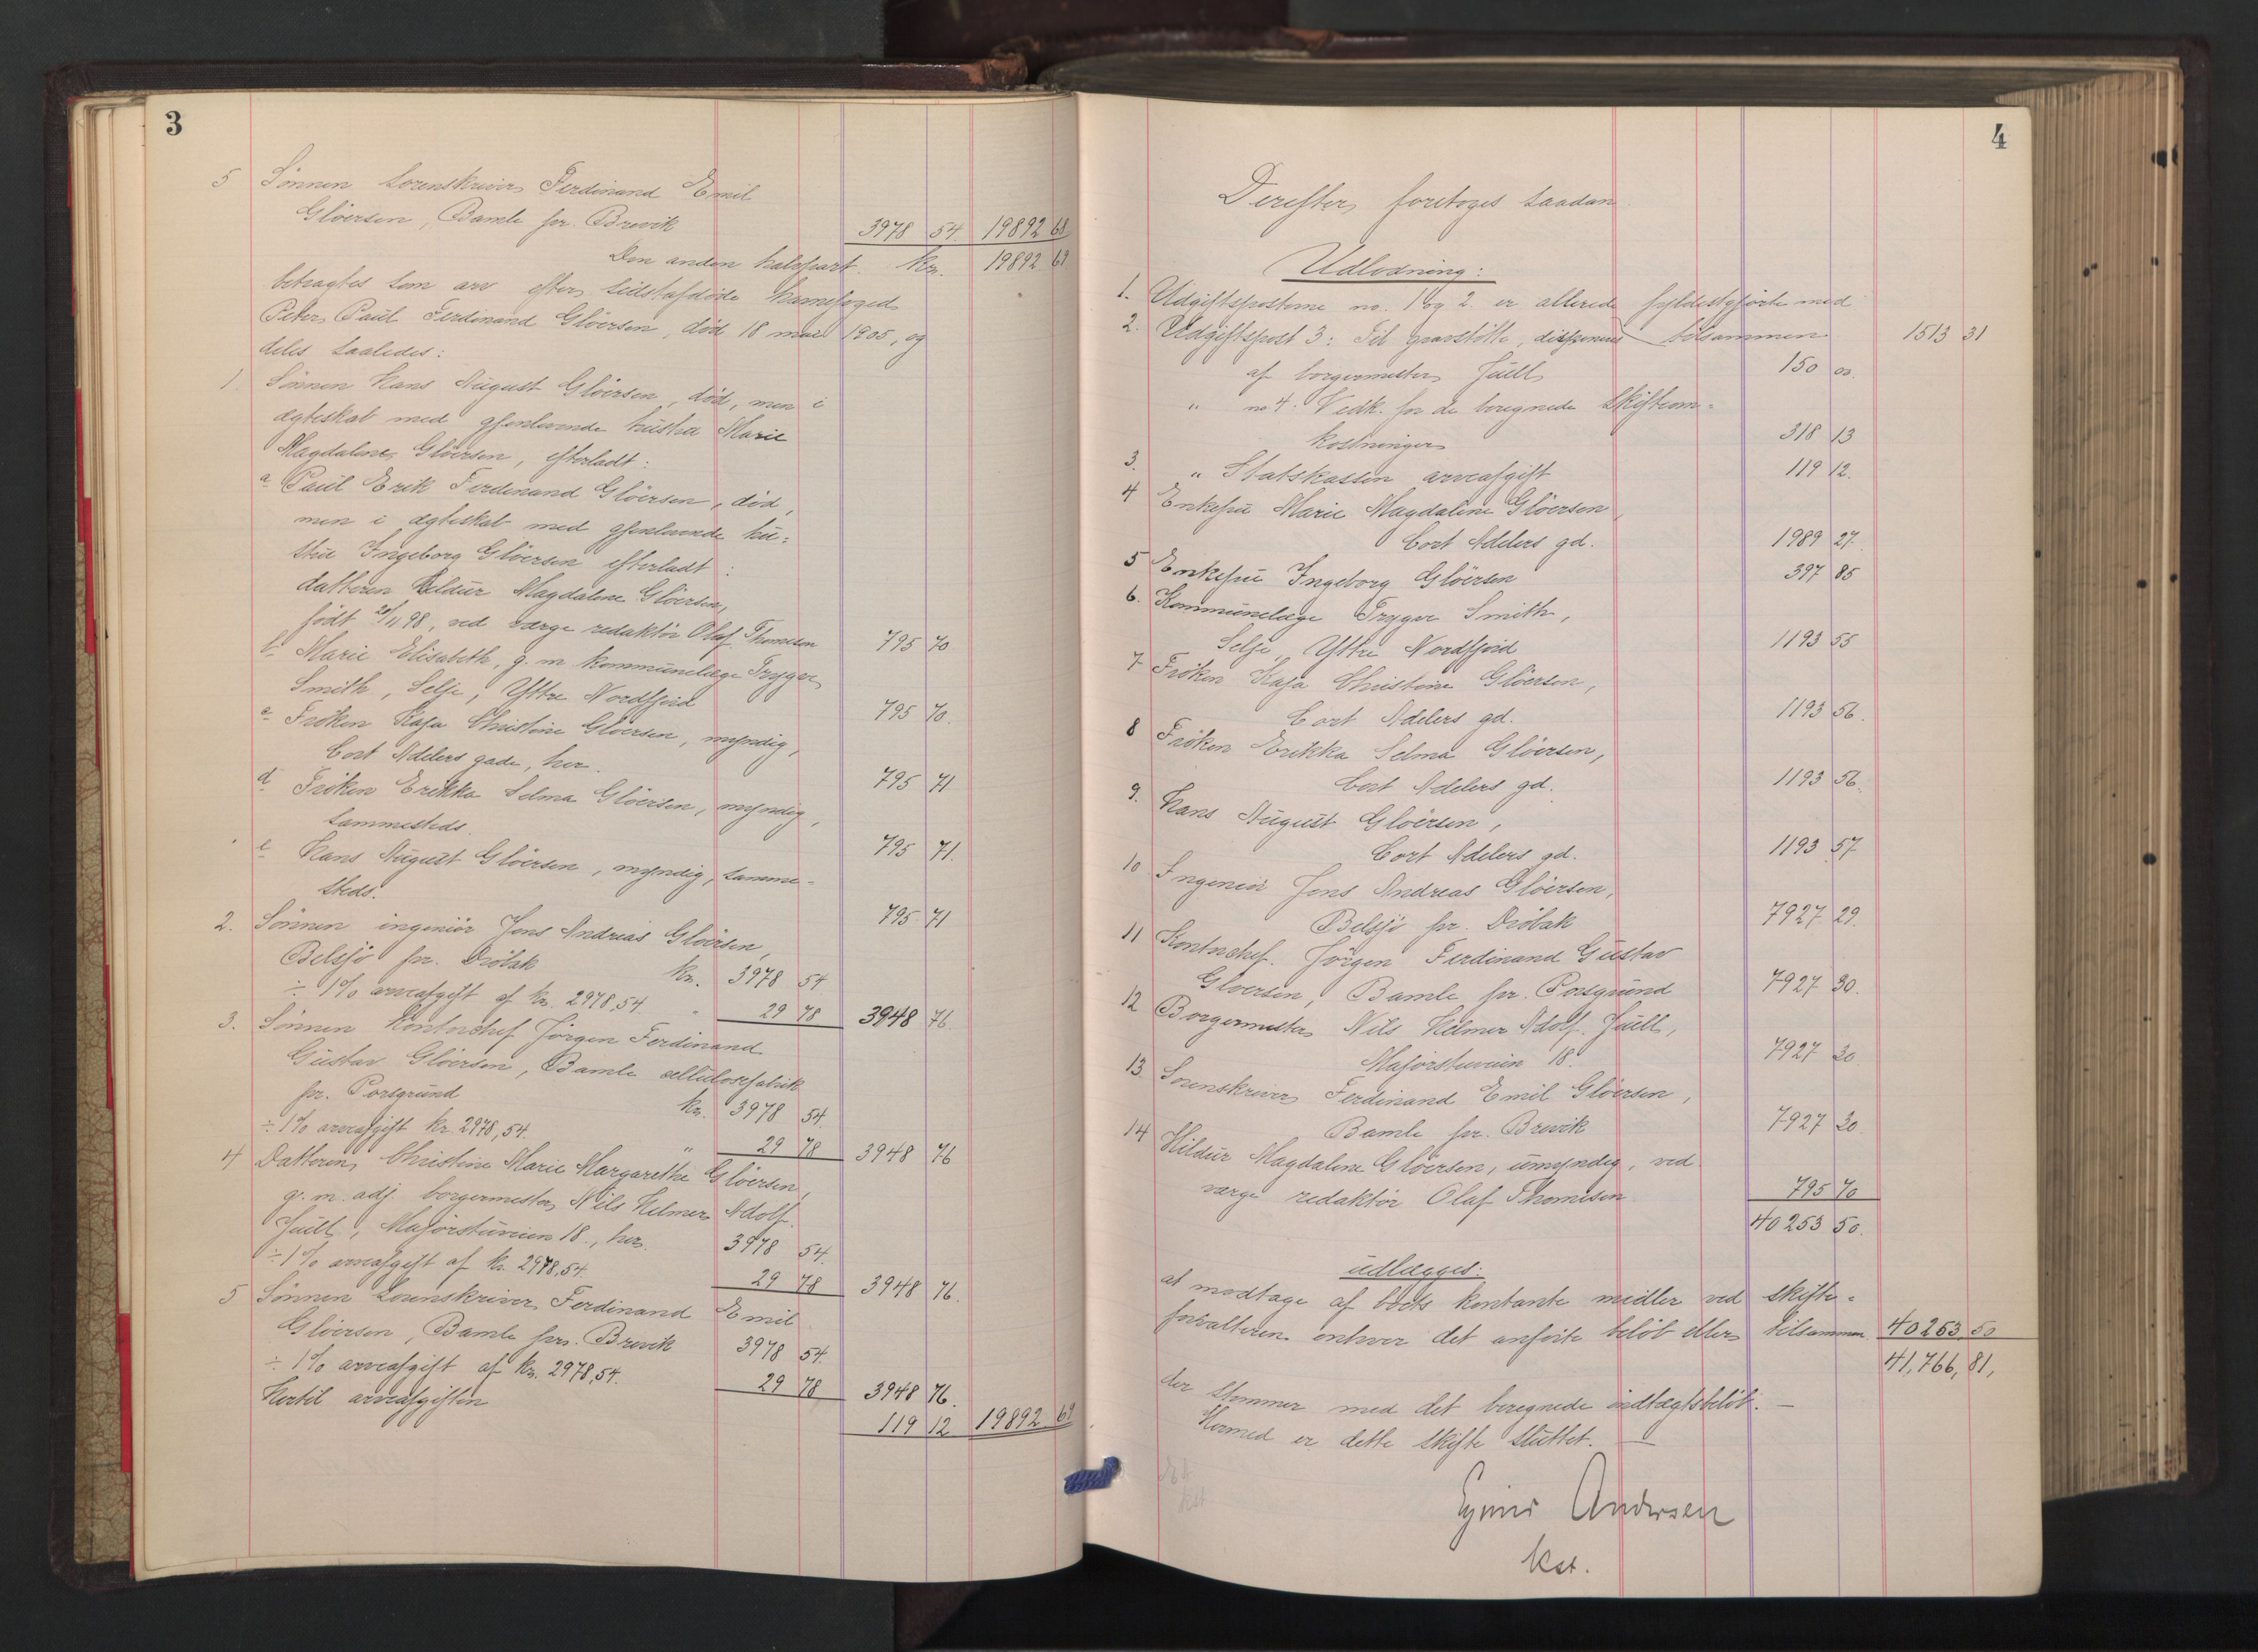 3
5 Sönnen sorenskriver Ferdinand Emil
Glöersen, Bamle pr. Brevik 3978 54. 19892 68
Den anden halvpart. kr. 19892 69
betragtes som arv efter sidstafdöde kannefoged
Peter Paul Ferdinand Glöersen, död 18 mai 1905, og
deles saaledes:
1. Sönnen Hans August Glöersen, död, men i
ægteskab med gjenlevende hustru Marie
Magdalene Glöersen, efterladt:
a. Paul Erik Ferdinand Glöersen, död,
men i ægteskab med gjenlevende hu=
stru Ingeborg Glöersen efterladt:
datteren Hildur Magdalene Glöersen,
födt 20/11 98, ved værge redaktör Olaf Thomesen 795 70.
b. Marie Elisabeth, g. m. kommunelæge Trygve
Smith, Selje, Yttre Nordfjord 795 70.
c. Fröken Kaja Christine Glöersen, myndig,
Cort Adelers gade, her. 795 71
d. Fröken Erikka Selma Glöersen, myndig,
sammesteds. 795 71.
e. Hans August Glöersen, myndig, samme-
steds. 795 71
2. Sönnen ingeniör Jens Andreas Glöersen,
Belsjö pr. Dröbak kr. 3978 54
÷ 1% arveafgift af kr. 2978,54. " 29 78 3948 76.
3. Sönnen Kontorchef Jörgen Ferdinand
Gustav Glöersen, Bamle cellulosefabrik
pr. Porsgrund kr. 3978 54.
÷ 1% arveafgift kr. 2978,54. " 29 78 3948 76
4 Datteren Christine Marie Margarethe Glöersen,
g. m. adj. borgermester Nils Helmer Adolf
Juell, Majorstuveien 18., her. 3978 54.
÷ 1% arveafgift af kr. 2978,54. 29 78 3948 76.
5 Sönnen sorenskriver Ferdinand Emil
Glöersen, Bamle pr. Brevik 3978 54.
÷ 1% arveafgift af kr. 2978,54. 29 78 3948 76.
Hertil arveafgiften 119 12 19892 69
4
Derefter foretoges saadan
Udlodning:
1. Udgiftsposterne no. 1 og 2. er allerede fyldestgjorte med
tilsammen 1513 31
2. Udgiftspost 3: Til gravstötte, disponeres
af borgermester Juell 150 00.
" no 4. Vedk. for de beregnede skifteom=
kostninger 318 13
3. " Statskassen arveafgift 119 12.
4 Enkefru Marie Magdalene Glöersen,
Cort Adelers gd. 1989 27.
5 Enkefru Ingeborg Glöersen 397 85
6. Kommunelæge Trygve Smith,
Selje, Yttre Nordfjord 1193 55
7 Fröken Kaja Christine Glöersen,
Cort Adelers gd. 1193 56.
8 Fröken Erikka Selma Glöersen,
Cort Adelers gd. 1193 56.
9. Hans August Glöersen,
Cort Adelers gd. 1193 57
10 Ingeniör Jens Andreas Glöersen,
Belsjö pr. Dröbak 7927 29.
11 Kontorchef. Jörgen Ferdinand Gustav
Gloersen, Bamle pr. Porsgrund 7927 30.
12 Borgermester Nils Helmer Adolf Juell,
Majorstuveien 18. 7927 30
13. Sorenskriver Ferdinand Emil Glöersen,
Bamle pr. Brevik 7927 30.
14 Hildur Magdalene Glöersen, umyndig, ved
værge redaktör Olaf Thomesen 795 70
40253 50.
udlægges:
at modtage af boets kontante midler ved skifte-
forvalteren enhver det anförte belöb eller tilsammen 40253 50
41,766, 81,
der stemmer med det beregnede indtægtsbelöb. —
Hermed er dette skifte sluttet. —
Andersen
kst.